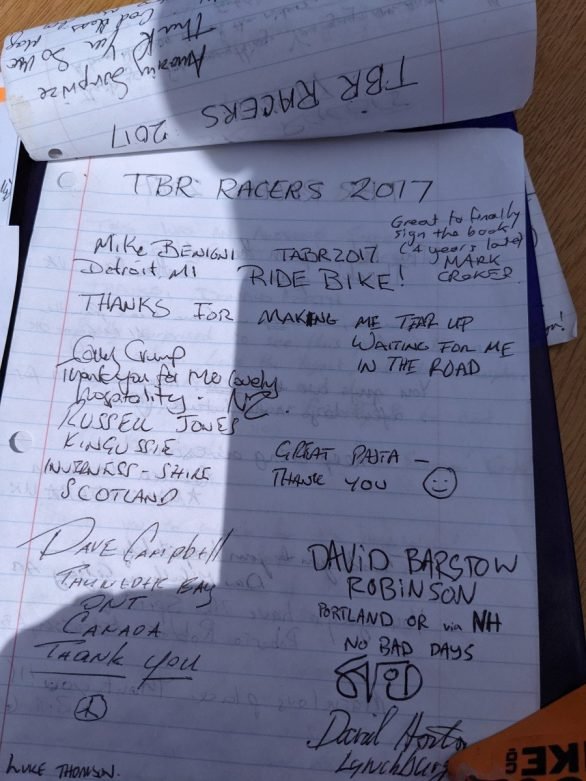 TBR RACERS
2017
Amazing Surprize
Thank You So
God Bless
TBR RACERS 2017
Great to finally
sign the book
(4 years late)
MARK
CROKER.
MIKE BENIGNI TABR2017
Detroit, MI RIDE BIKE!
THANKS FOR MAKING ME TEAR UP
WAITING FOR ME
IN THE ROAD
Crump
Thank you for the lovely
hospitality - NZ.
RUSSELL JONES
KINGUSSIE
INVERNESS-SHIRE
SCOTLAND
GREAT PASTA -
THANK YOU
DAVE Campbell
THUNDER BAY
ONT
CANADA
THANK YOU
DAVID BARSTOW
ROBINSON
PORTLAND OR via NH
NO BAD DAYS
David Horton
Lynchburg
LUKE THOMSON.
KE